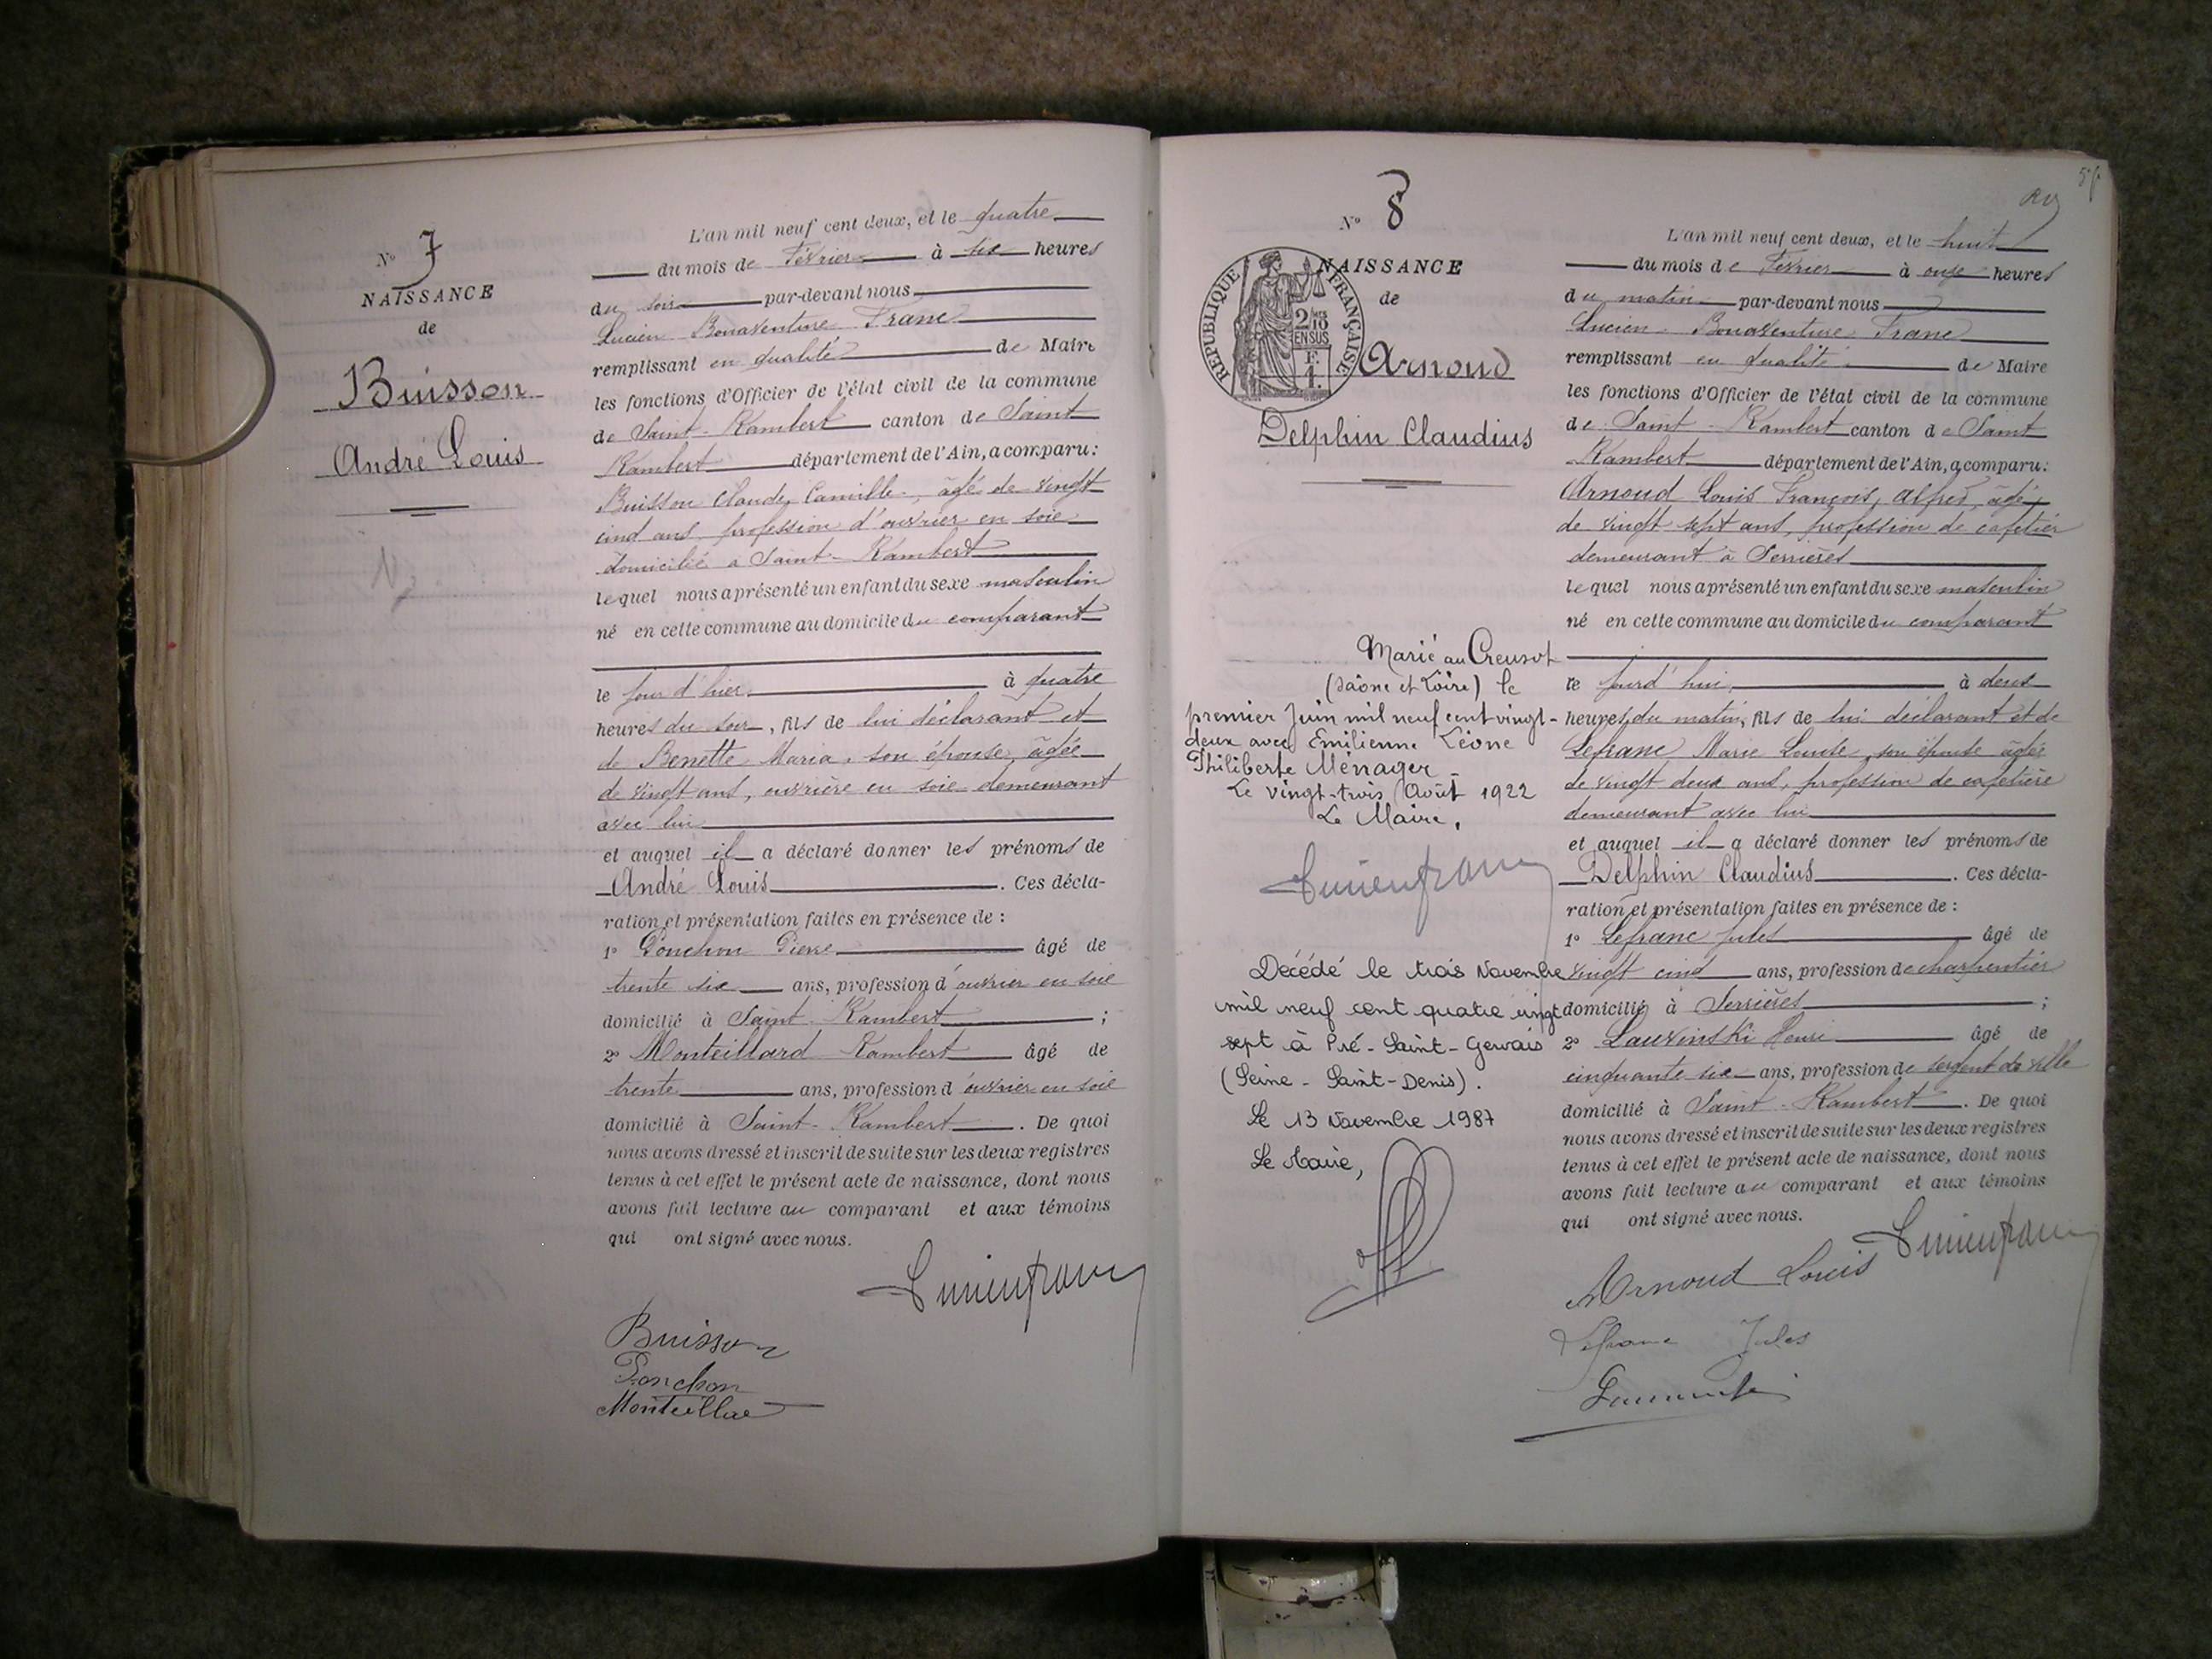 N° 7
NAISSANCE
de
Buisson
André Louis
L'an mil neuf cent deux, et le quatre
du mois de Février à six heures
du soir par-devant nous
Lucien Bonaventure Franc
remplissant en qualité de Maire
les fonctions d'Officier de l'état civil de la commune
de Saint-Rambert canton de Saint
Rambert département de l'Ain, a comparu:
Buisson Claude Camille, âgé de vingt
cinq ans, profession d'ouvrier en soie
domicilié à Saint-Rambert
lequel nous a présenté un enfant du sexe masculin
né en cette commune au domicile du comparant
le jour d'hier à quatre
heures du soir, fils de lui déclarant et
de Benette Maria, son épouse, âgée
de vingt ans, ouvrière en soie demeurant
avec lui
et auquel il a déclaré donner les prénoms de
André Louis. Ces décla-
ration et présentation faites en présence de :
1° Ponchon Pierre âgé de
trente six ans, profession d'ouvrier en soie
domicilié à Saint-Rambert ;
2° Monteillard Rambert âgé de
trente ans, profession d'ouvrier en soie
domicilié à Saint-Rambert. De quoi
nous avons dressé et inscrit de suite sur les deux registres
tenus à cet effet le présent acte de naissance, dont nous
avons fait lecture au comparant et aux témoins
qui ont signé avec nous.
Lucien franc
Buisson
Ponchon
Monteillard
N° 8
NAISSANCE
de
RÉPUBLIQUE FRANÇAISE
2/10
EN SUS
F.
1.
Arnoud
Delphin Claudius
Marié au Creusot
(Saône et Loire) le
premier Juin mil neuf cent vingt-
deux avec Emilienne Léone
Philiberte Ménager
Le vingt-trois Août 1922
Le Maire,
Lucien franc
Décédé le trois Novembre
mil neuf cent quatre vingt
sept à Pré-Saint-Gervais
(Seine-Saint-Denis).
Le 13 Novembre 1987
Le Maire,
L'an mil neuf cent deux, et le huit
du mois de Février à onze heures
du matin par-devant nous
Lucien Bonaventure Franc
remplissant en qualité de Maire
les fonctions d'Officier de l'état civil de la commune
de Saint-Rambert canton de Saint
Rambert département de l'Ain, a comparu:
Arnoud Louis François, Alfred, âgé
de vingt sept ans, profession de cafetier
demeurant à Serrières
lequel nous a présenté un enfant du sexe masculin
né en cette commune au domicile du comparant
le jourd'hui, à deux
heures du matin, fils de lui déclarant et de
Lefranc Marie Louise son épouse âgée
de vingt deux ans, profession de cafetière
demeurant avec lui
et auquel il a déclaré donner les prénoms de
Delphin Claudius. Ces décla-
ration et présentation faites en présence de :
1° Lefranc Jules âgé de
vingt cinq ans, profession de charpentier
domicilié à Serrières ;
2° Lauvinski Henri âgé de
cinquante six ans, profession de sergent de ville
domicilié à Saint-Rambert. De quoi
nous avons dressé et inscrit de suite sur les deux registres
tenus à cet effet le présent acte de naissance, dont nous
avons fait lecture au comparant et aux témoins
qui ont signé avec nous.
Lucien franc
Arnoud Louis
Lefranc Jules